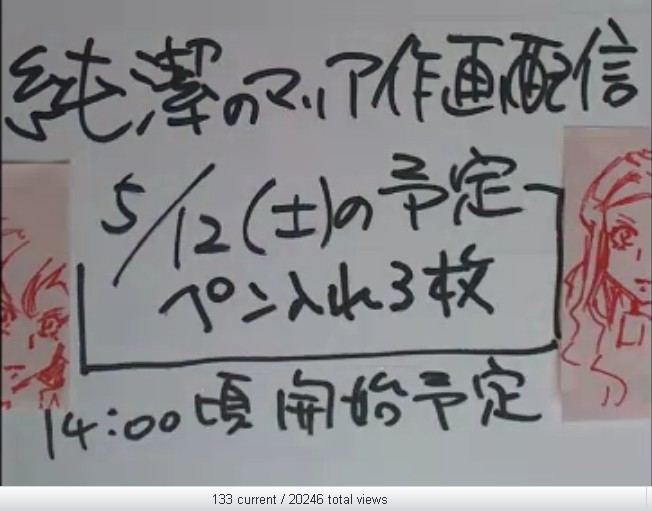 純潔のマリア作画配信
5/12(土)の予定
ペン入れ3枚
14:00頃 開始予定
133 current / 20246 total views